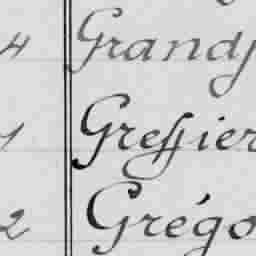 4 Grandj
1 Greffier
2 Grégo